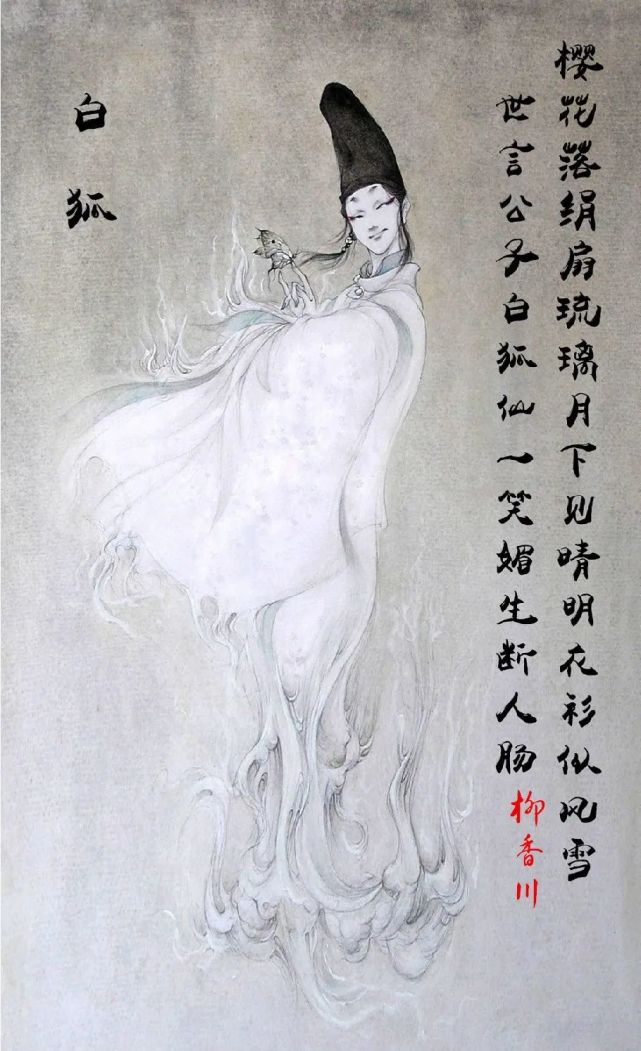 樱花落绢扇琉璃月下见晴明衣衫似风雪
世言公子白狐仙一笑媚生断人肠
柳香川
白狐